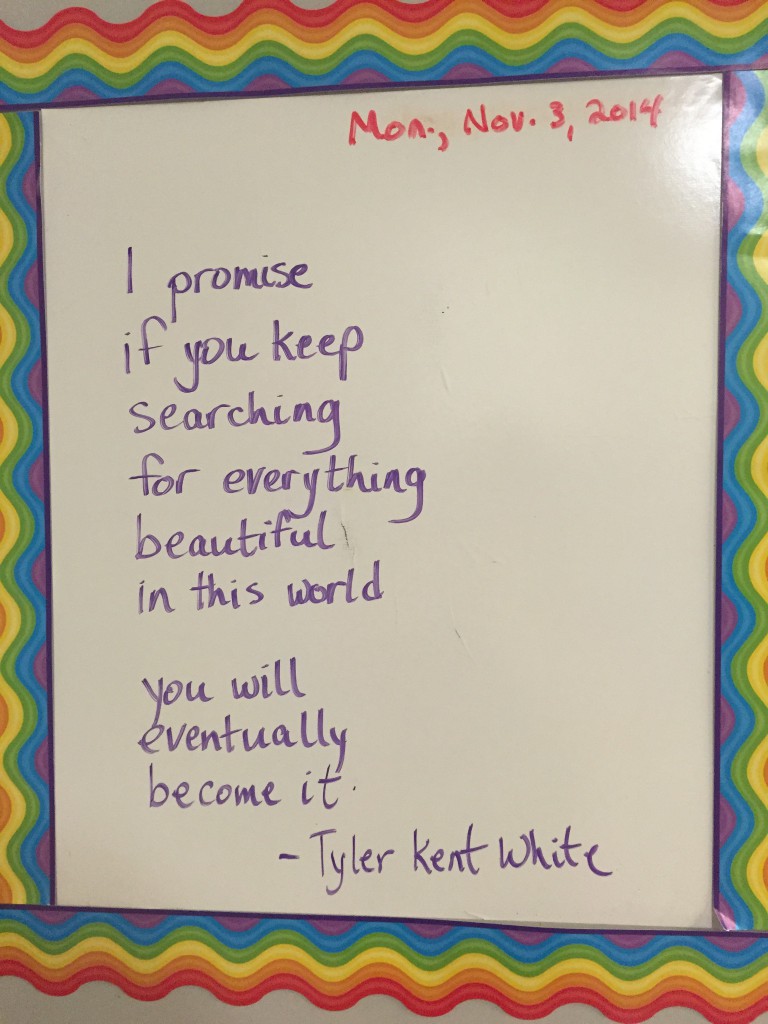 Mon., Nov. 3, 2014
I promise
if you keep
searching
for everything
beautiful
in this world
you will
eventually
become it.
- Tyler Kent White